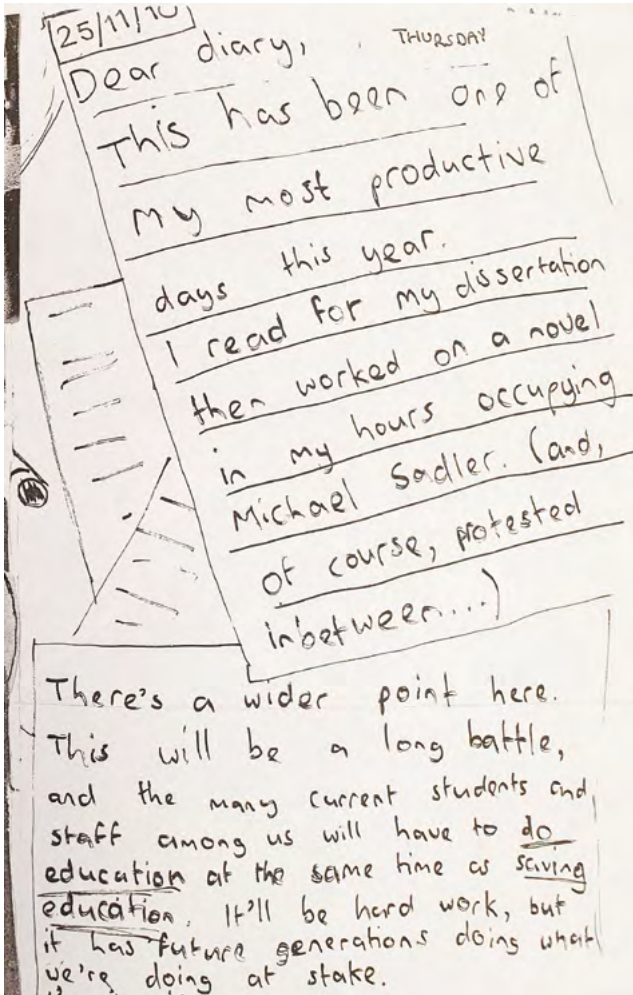 25/11/10
THURSDAY
Dear diary,
This has been one of
my most productive
days this year.
I read for my dissertation
then worked on a novel
in my hours occupying
Michael Sadler. (and,
of course, protested
inbetween...)
There's a wider point here.
This will be a long battle,
and the many current students and
staff among us will have to do
education at the same time as saving
education. It'll be hard work, but
it has future generations doing what
we're doing at stake.